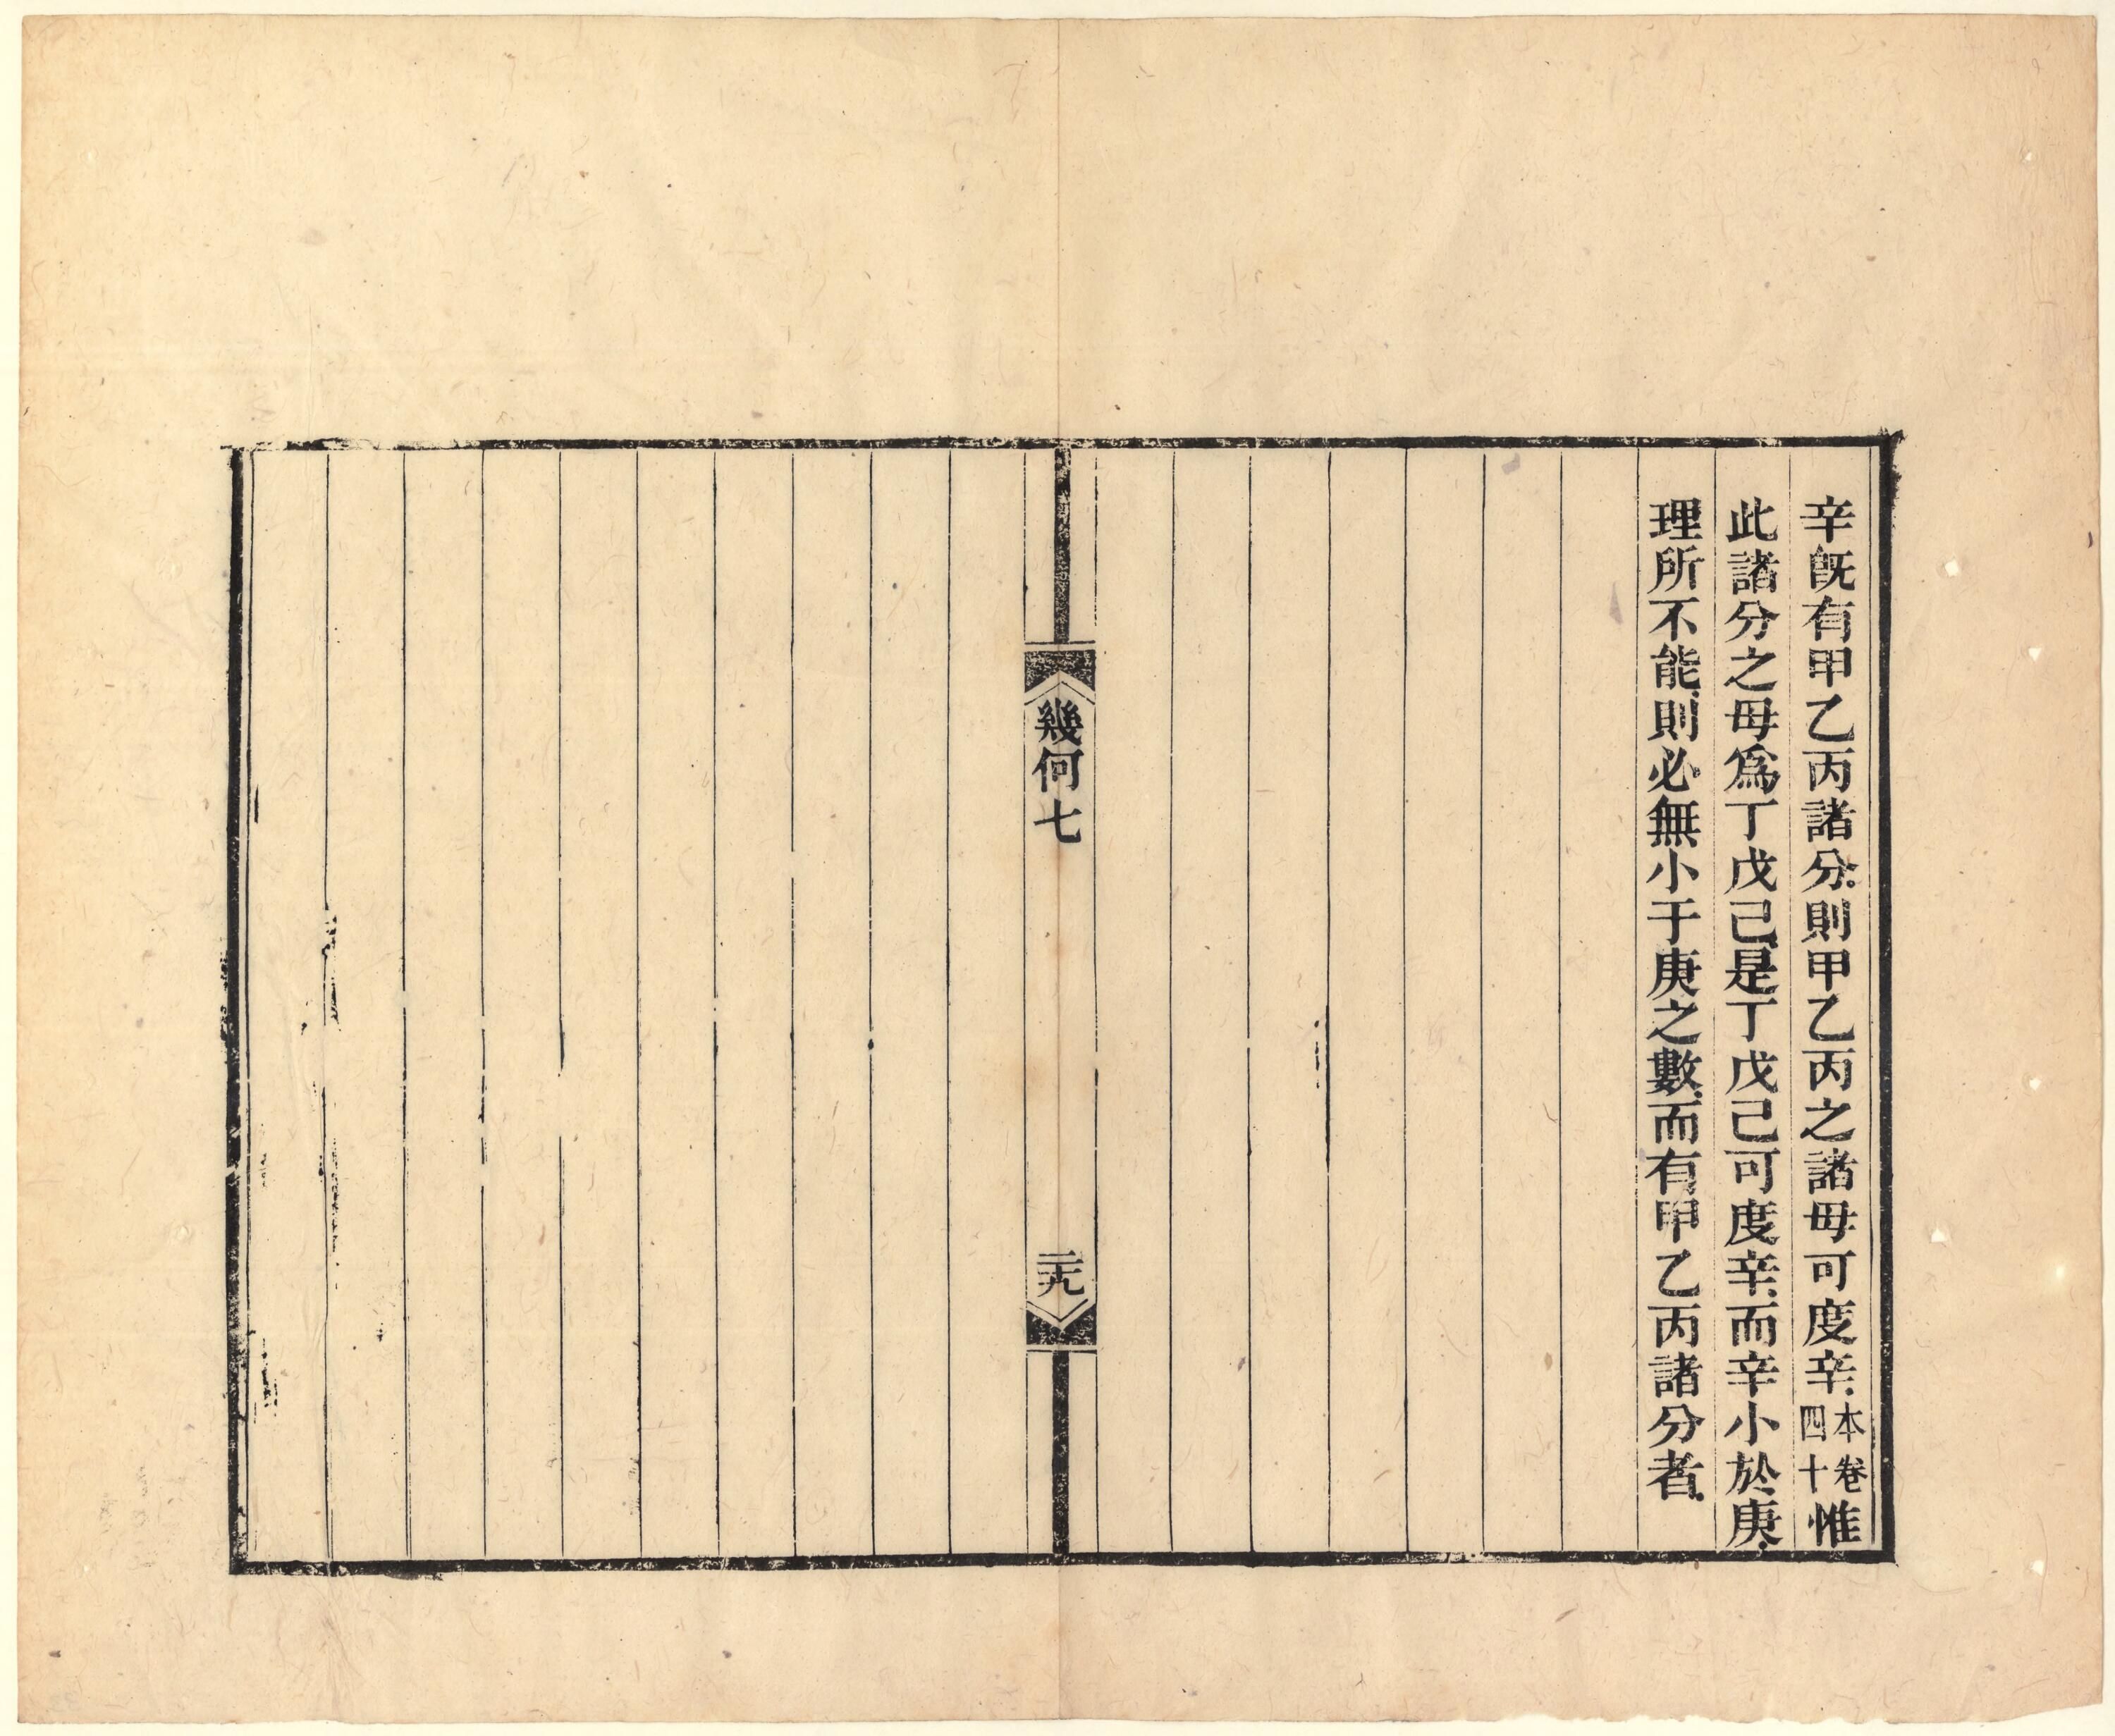 辛旣有甲乙丙諸分.則甲乙丙之諸母可度辛.本卷四十惟
此諸分之母爲丁戊己.是丁戊己可度辛.而辛小於庚.
理所不能.則必無小于庚之數.而有甲乙丙諸分者.
幾何七
三十九